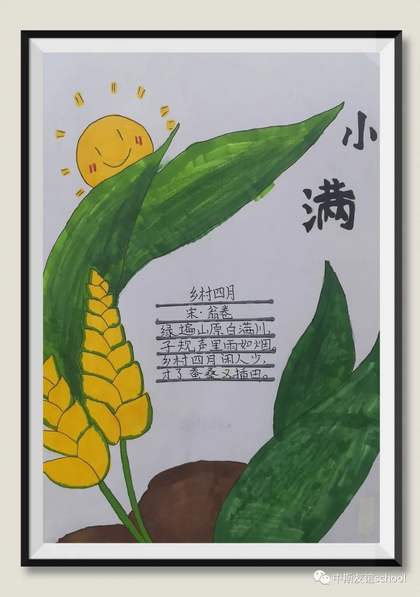 小
满
乡村四月
宋·翁卷
绿遍山原白满川,
子规声里雨如烟。
乡村四月闲人少,
才了蚕桑又插田。
中斯友谊school